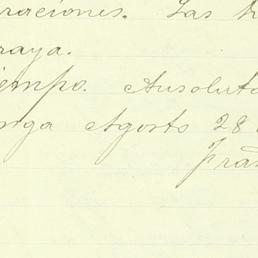 raciones. Las h
raya.
iempo. Ausoluta
nga Agosto 28
Fran